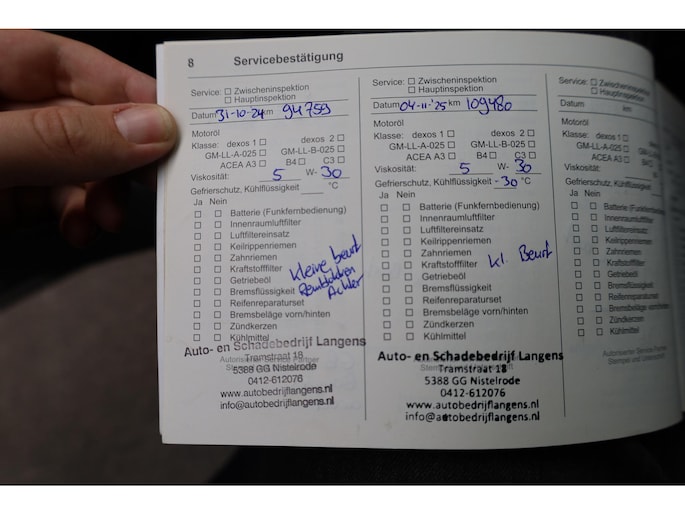 8 Servicebestätigung
Service: Zwischeninspektion
Hauptinspektion
Datum 31-10-24 km 94759
Motoröl
Klasse: dexos 1 dexos 2
GM-LL-A-025 GM-LL-B-025
ACEA A3 B4 C3
Viskosität: 5 W- 30
Gefrierschutz, Kühlflüssigkeit °C
Ja Nein
Batterie (Funkfernbedienung)
Innenraumluftfilter
Luftfiltereinsatz
Keilrippenriemen
Zahnriemen
Kraftstofffilter
Getriebeöl
Bremsflüssigkeit
Reifenreparaturset
Bremsbeläge vorn/hinten
Zündkerzen
Kühlmittel
Kleine beurt
Remblokken
Achter
Auto- en Schadebedrijf Langens
Tramstraat 18
5388 GG Nistelrode
0412-612076
www.autobedrijflangens.nl
info@autobedrijflangens.nl
Service: Zwischeninspektion
Hauptinspektion
Datum 04-11-'25 km 109480
Motoröl
Klasse: dexos 1 dexos 2
GM-LL-A-025 GM-LL-B-025
ACEA A3 B4 C3
Viskosität: 5 W- 30
Gefrierschutz, Kühlflüssigkeit -30 °C
Ja Nein
Batterie (Funkfernbedienung)
Innenraumluftfilter
Luftfiltereinsatz
Keilrippenriemen
Zahnriemen
Kraftstofffilter
Getriebeöl
Bremsflüssigkeit
Reifenreparaturset
Bremsbeläge vorn/hinten
Zündkerzen
Kühlmittel
Kl. Beurt
Auto- en Schadebedrijf Langens
Tramstraat 18
5388 GG Nistelrode
0412-612076
www.autobedrijflangens.nl
info@autobedrijflangens.nl
Service: Zwischeninspektion
Hauptinspektion
Datum km
Motoröl
Klasse: dexos 1
GM-LL-A-025
ACEA A3
Viskosität:
Gefrierschutz, Kühlflüssigkeit
Ja Nein
Batterie (Funkfernbedienung)
Innenraumluftfilter
Luftfiltereinsatz
Keilrippenriemen
Zahnriemen
Kraftstofffilter
Getriebeöl
Bremsflüssigkeit
Reifenreparaturset
Bremsbeläge vorn/hinten
Zündkerzen
Kühlmittel
Autorisierter Service Partner
Stempel und Unterschrift